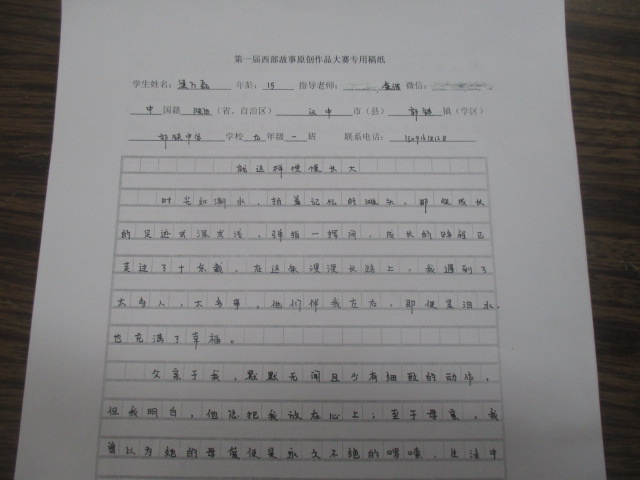 第一届西部故事原创作品大赛专用稿纸
学生姓名： 年龄：15 指导老师： 微信：
中国籍 陕西（省、自治区） 汉中 市（县） 镇（学区）
学校 九 年级 一 班 联系电话：
就这样慢慢长大
时光如潮水，拍着记忆的滩头，那些成长
的足迹或深或浅，弹指一挥间，成长的路程已
走过了十余载，在这条漫漫长路上，我遇到了
太多人，太多事，他们伴我左右，那便是泪水，
也充满了幸福。
父亲于我，默默无闻且少有细致的动作，
但我明白，他总把我放在心上；至于母亲，我
曾以为她的母爱便是永久不绝的啰嗦，生活中